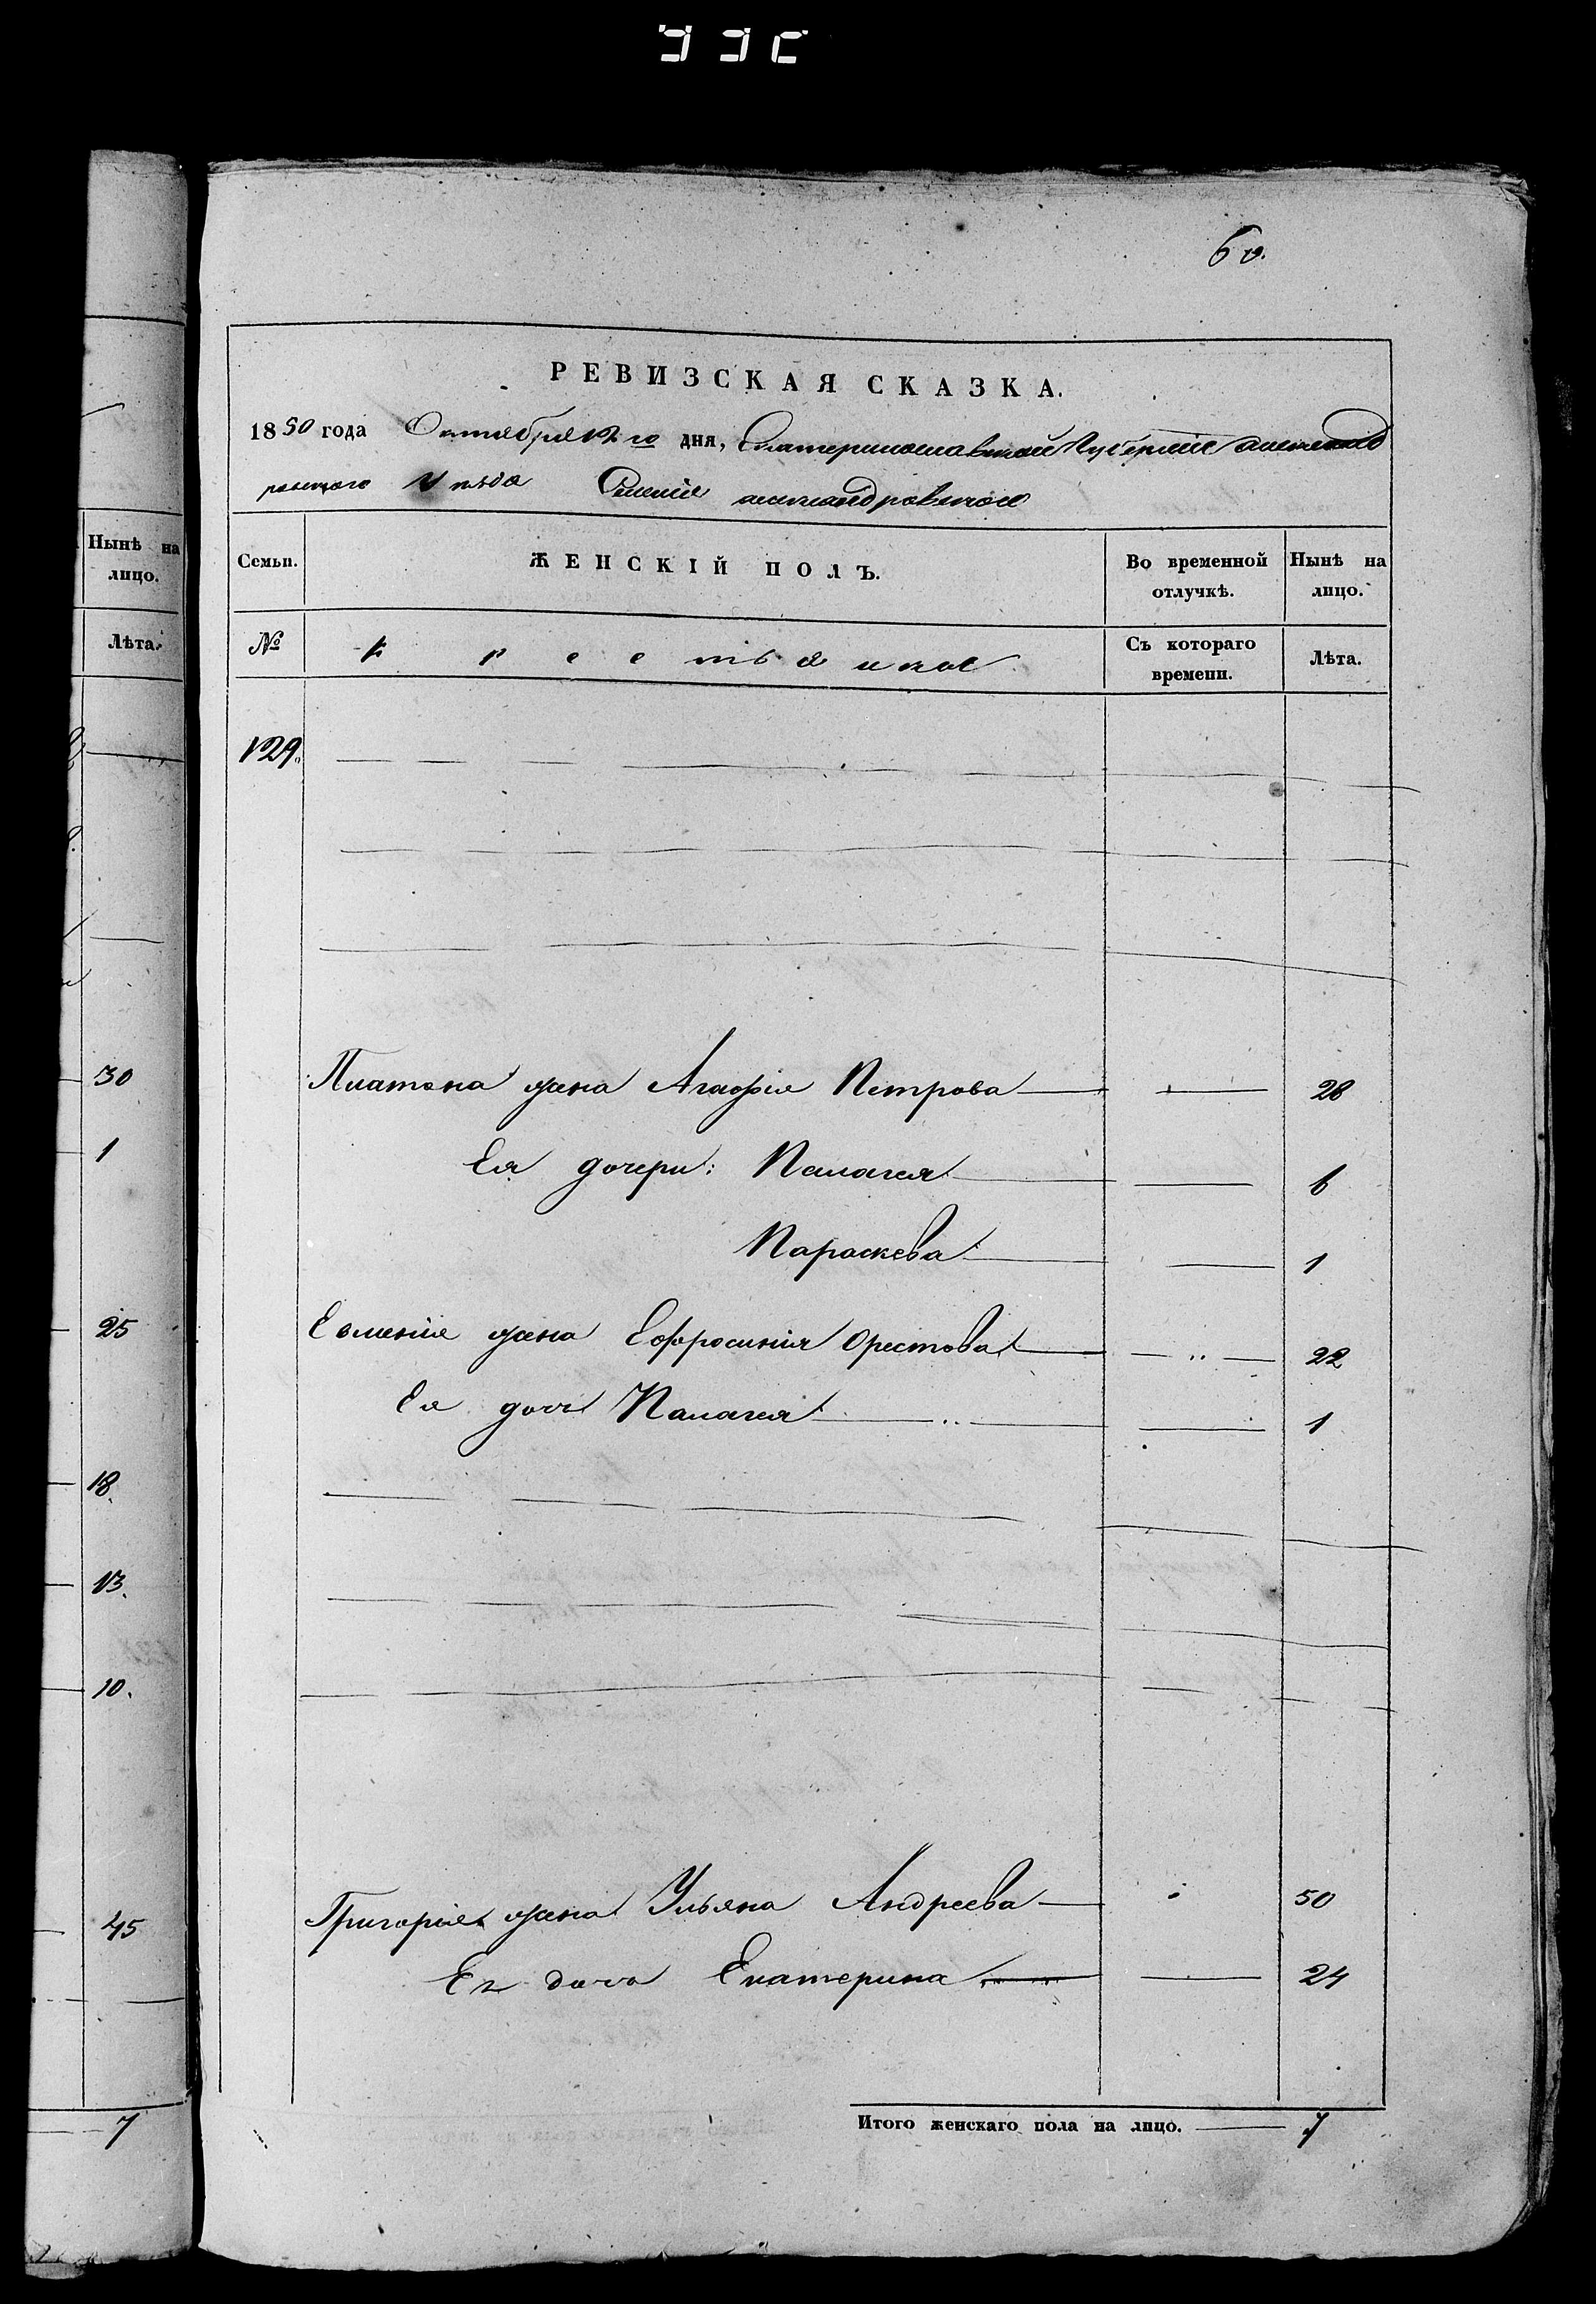 60.
РЕВИЗСКАЯ СКАЗКА.
1850 года Октября 12го дня, Екатеринославской Губернiи Александ
ровскаго Уѣзда Селенiя Александровской
Нынѣ на лицо.
Семьи. ЖЕНСКІЙ ПОЛЪ. Во временной отлучкѣ. Нынѣ на лицо.
Лѣта.
№ Крестьянкос Съ котораго времени. Лѣта.
129.
30 Платона жена Агафiя Петрова 28
1 Ея дочери: Пелагея 6
Параскева 1
25 Евменiя жена Ефросинiя Орестова 22
Ея дочь Палагея 1
18.
13.
10.
45 Григорiя жена Ульяна Андреева 50
Ея дочь Екатерина 24
7 Итого женскаго пола на лицо. 7